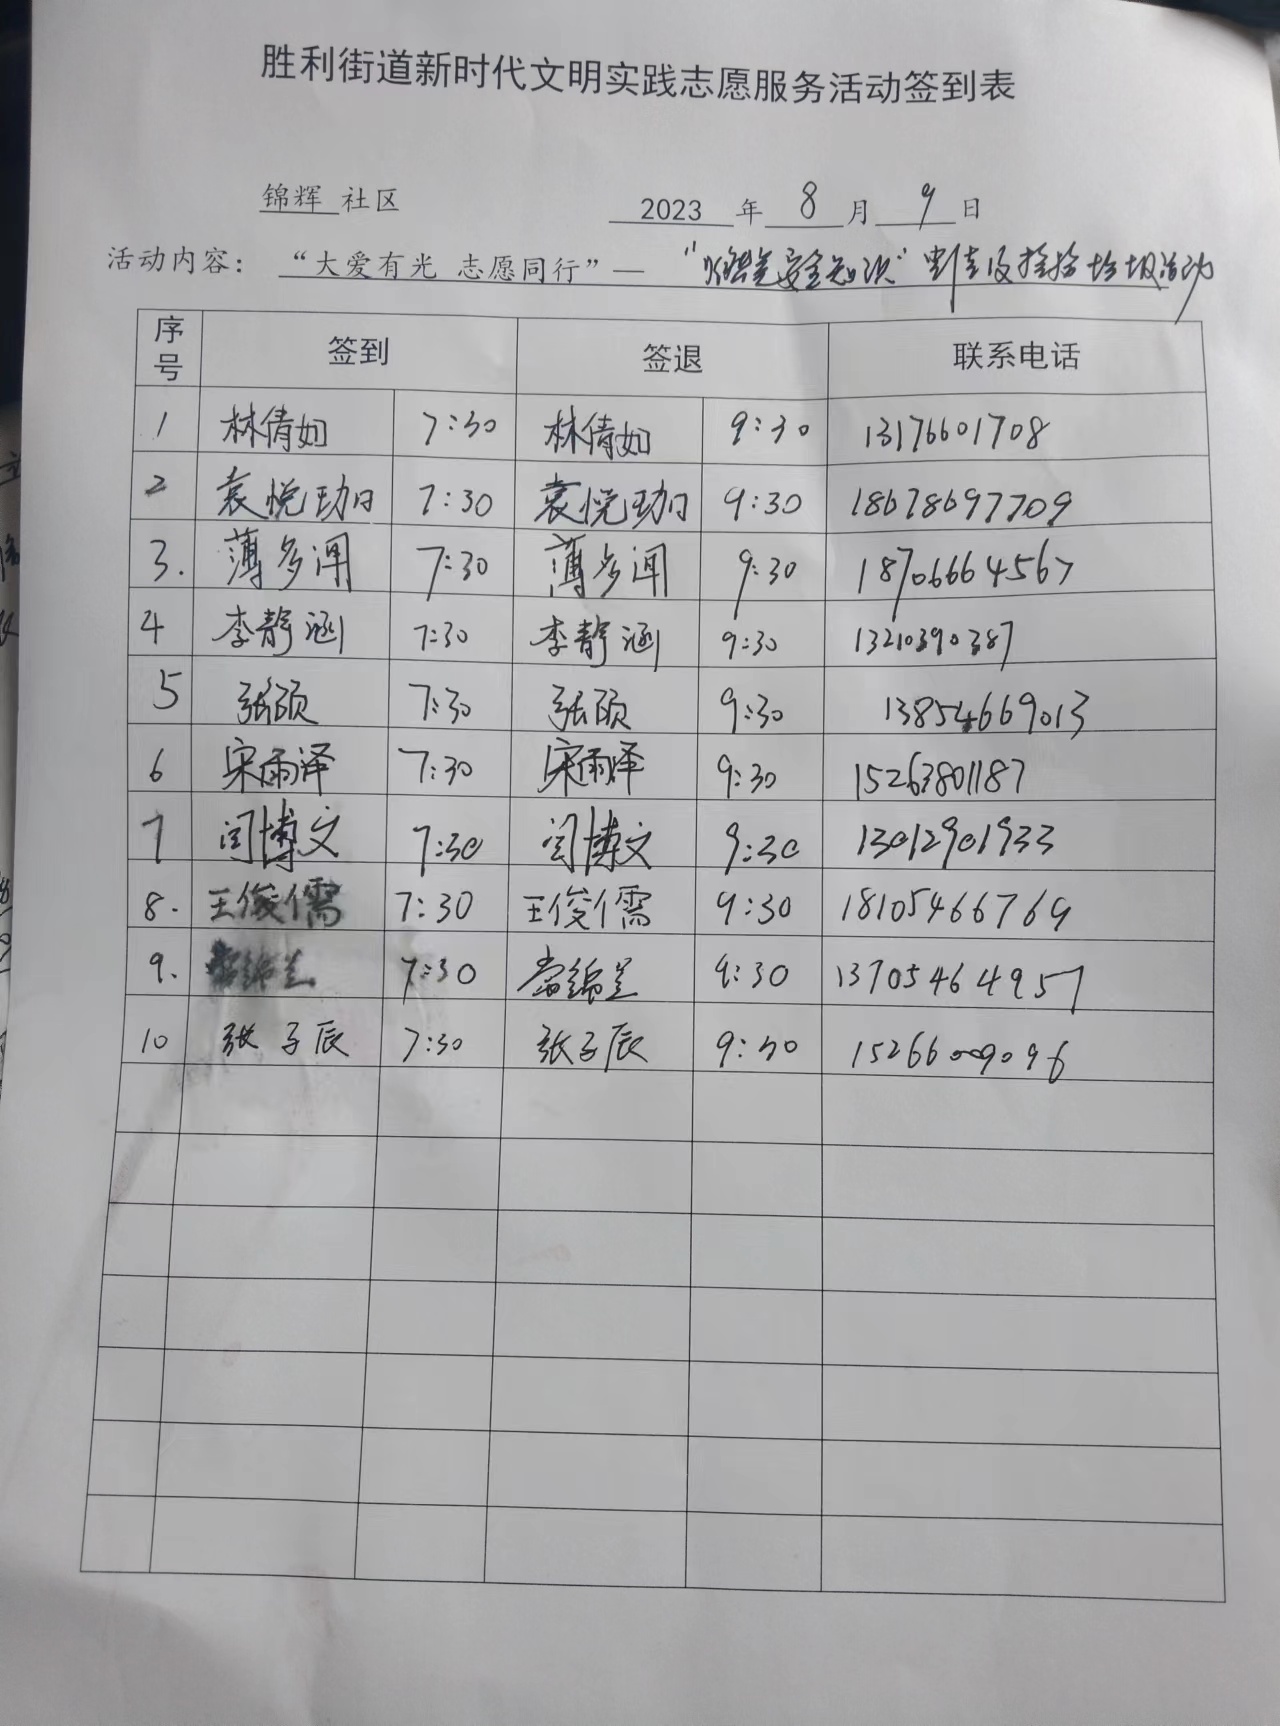 胜利街道新时代文明实践志愿服务活动签到表
锦辉 社区 2023 年 8 月 9 日
活动内容： “大爱有光 志愿同行”— 安全知识” 宣传及捡拾垃圾活动
序号 签到 签退 联系电话
1 林倩如 7:30 林倩如 9:30 13176601708
2 袁悦 7:30 袁悦 9:30 18678697709
3. 薄多闻 7:30 薄多闻 9:30 18706664567
4 李静涵 7:30 李静涵 9:30 13210390387
5 张硕 7:30 张硕 9:30 13854669013
6 宋雨泽 7:30 宋雨泽 9:30 15263801187
7 闫博文 7:30 闫博文 9:30 13012901933
8. 王俊儒 7:30 王俊儒 9:30 18105466769
9. 7:30 常锦兰 9:30 13705464957
10 张子辰 7:30 张子辰 9:30 15266009096